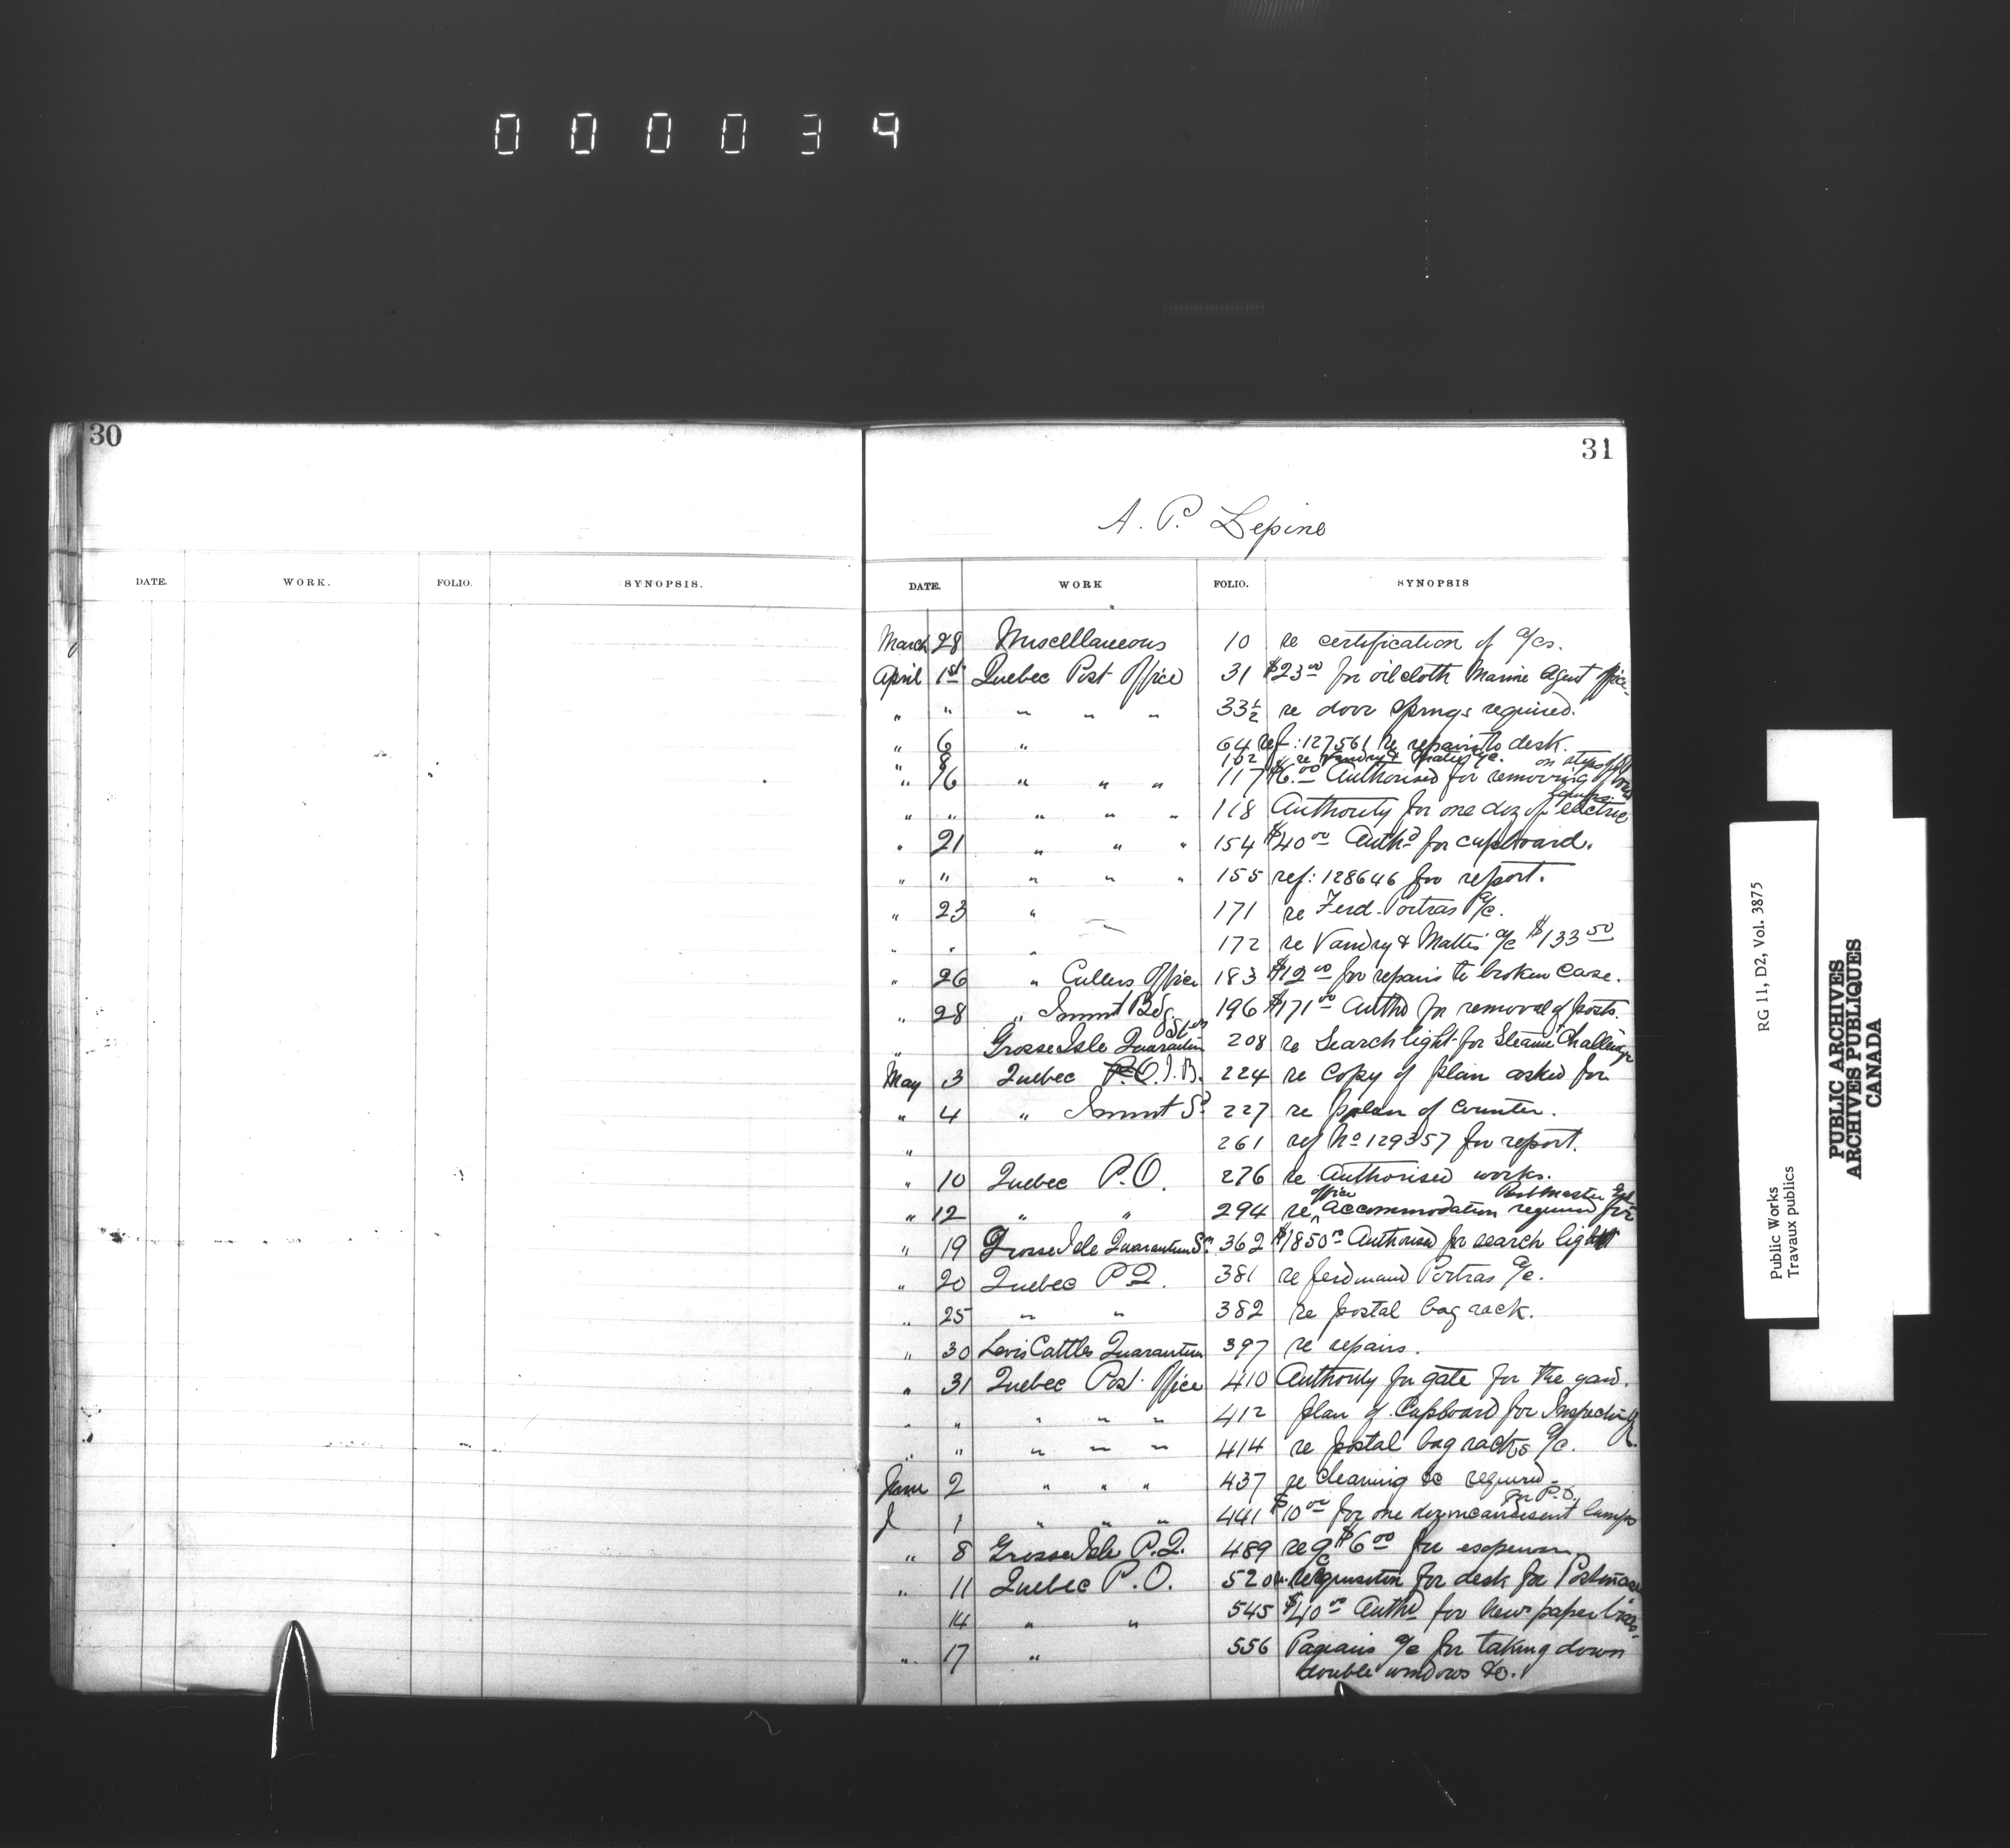 000039
30
DATE. WORK. FOLIO. SYNOPSIS.
31
A. P. Lepine
DATE. WORK FOLIO. SYNOPSIS
March 28 Miscellaneous 10 re certification of a/cs.
April 1st Quebec Post Office 31 $23.00 for oil cloth Marine Agent office
" " " " " 33½ re door springs required.
" 6 " 64 ref: 127561 re repairs to desk.
" 8 102 " re Vandry & Matte a/c. on steps of
" 16 " " " 117 $6.00 Authorised for removing
" " " " " 118 Authority for one doz of electric lamps
" 21 " " " 154 $40.00 Authd for cupboard.
" " " " " 155 ref: 128646 for report.
" 23 " 171 re Ferd. Portras a/c.
" " " 172 re Vandry & Matte a/c $133.50
" 26 " Cullers Office 183 $12.00 for repairs to broken case.
" 28 " Immt Bdg. 196 $171.00 Authd for removal of posts.
" Grosse Isle Quarantine Stn 208 re Search light for Steamer Challenger
May 3 Quebec P.O. I.B. 224 re copy of plan asked for
" 4 " Immt Sd 227 re plan of counter.
" 261 ref No 129357 for report.
" 10 Quebec P.O. 276 re Authorised works.
" 12 " " 294 re office accommodation required for Postmaster Gnl
" 19 Grosse Isle Quarantine Sn 362 $1850.00 Authorised for search light
" 20 Quebec P.O. 381 re Ferdinand Portras a/c.
" 25 " " 382 re postal bag rack.
" 30 Levis Cattle Quarantine 397 re repairs.
" 31 Quebec Post Office 410 Authority for gate for the yard.
" " " " " 412 plan of Cupboard for Inspector
" " " " " 414 re postal bag racks a/c.
June 2 " " " 437 re cleaning &c required.
J 1 " " " 441 $10.00 for one doz incandescent lamps for P.O.
" 8 Grosse Isle P.Q. 489 re a/c $6.00 for
" 11 Quebec P.O. 520 Requisition for desk for Postmaster
14 " " 545 $40.00 Authd for newspaper
" 17 " 556 a/c for taking down
double windows &c.
RG 11, D2, Vol. 3875
Public Works
Travaux publics
PUBLIC ARCHIVES
ARCHIVES PUBLIQUES
CANADA